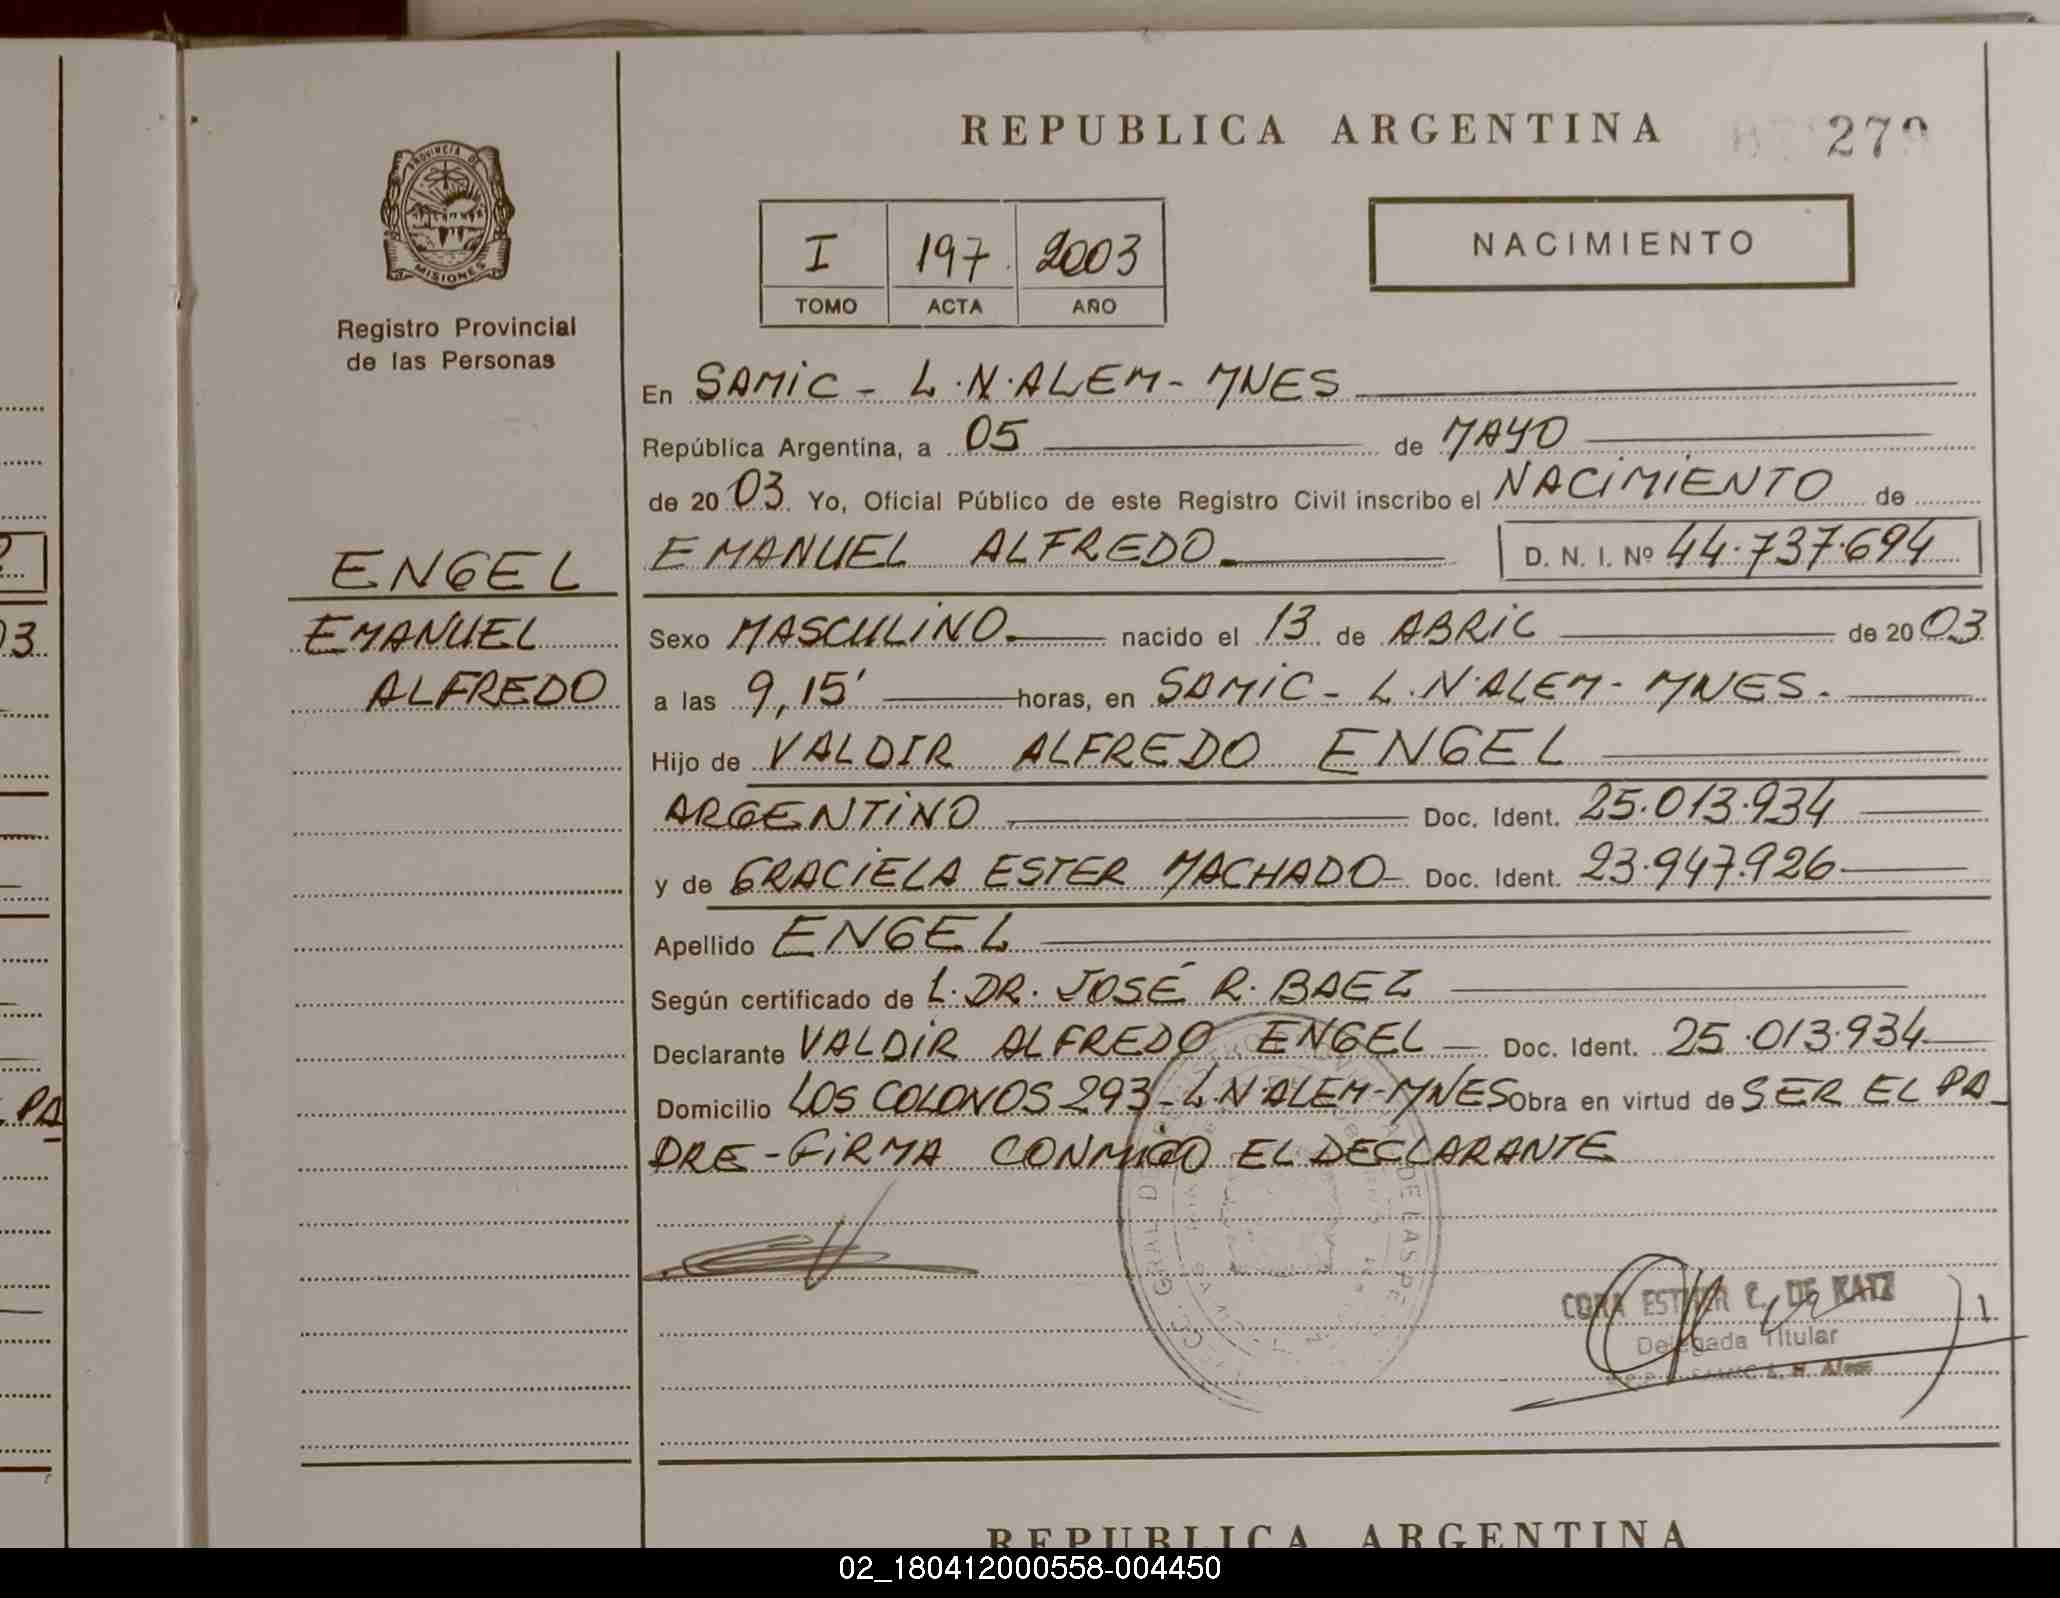 REPUBLICA ARGENTINA
279
PROVINCIA DE
MISIONES
Registro Provincial
de las Personas
I 197 2003
TOMO ACTA AÑO
NACIMIENTO
En SAMIC - L.N.ALEM - MNES
República Argentina, a 05 de MAYO
de 2003 Yo, Oficial Público de este Registro Civil inscribo el NACIMIENTO de
EMANUEL ALFREDO D. N. I. Nº 44.737.694
ENGEL
EMANUEL
ALFREDO
Sexo MASCULINO nacido el 13 de ABRIL de 2003
a las 9,15' horas, en SAMIC - L.N.ALEM - MNES.
Hijo de VALDIR ALFREDO ENGEL
ARGENTINO Doc. Ident. 25.013.934
y de GRACIELA ESTER MACHADO Doc. Ident. 23.947.926
Apellido ENGEL
Según certificado de L. DR. JOSÉ R. BAEZ
Declarante VALDIR ALFREDO ENGEL Doc. Ident. 25.013.934
Domicilio LOS COLONOS 293 - L.N.ALEM - MNES Obra en virtud de SER EL PA_
DRE - FIRMA CONMIGO EL DECLARANTE
CORA ESTHER C. DE KATZ
Delegada Titular
SAMIC L. N. Alem
03
PA
REPUBLICA ARGENTINA
02_180412000558-004450